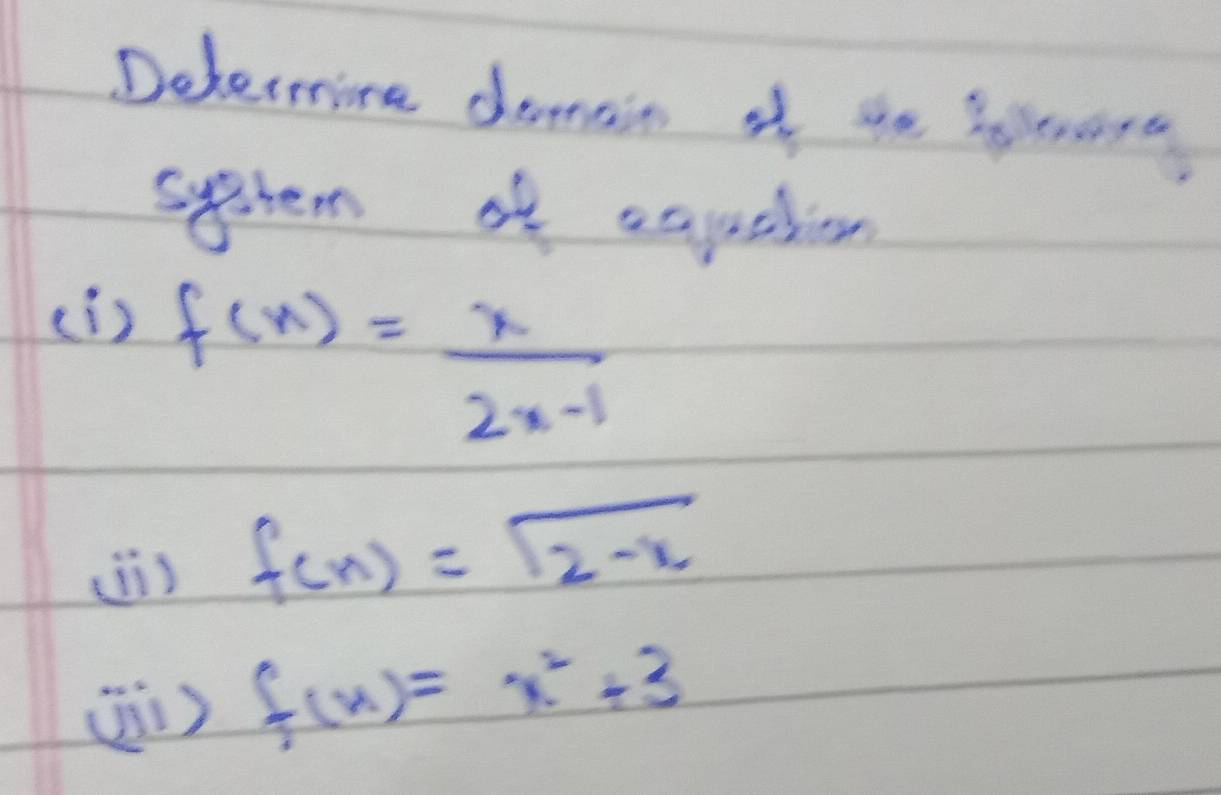 Determine domain of the following
system of equation
(i) f(x) = x
2x-1
(ii) f(x) = √2-x
(iii) f(x) = x² + 3